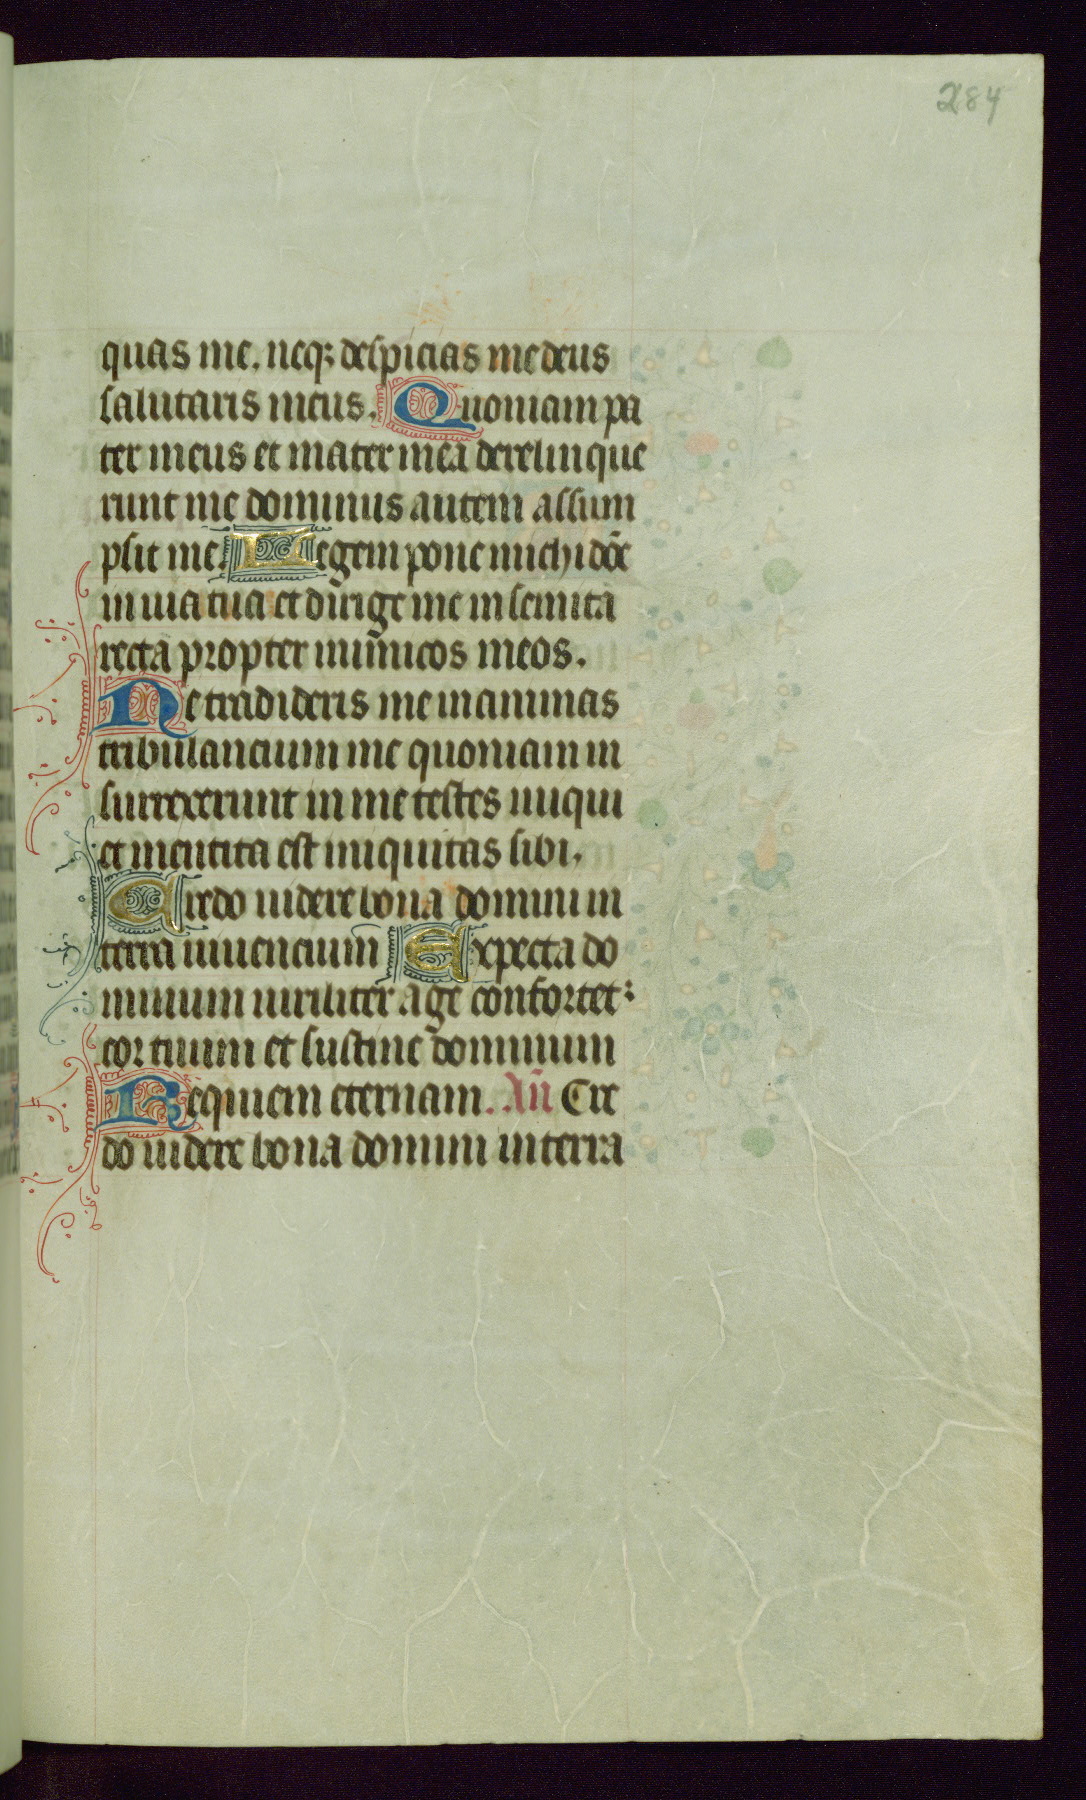 284
quas me. neq; despicias me deus
salutaris meus. Quoniam pa
ter meus et mater mea derelinque
runt me dominus autem assum
psit me. Legem pone michi dn̄e
in uia tua et dirige me in semita
recta propter inimicos meos.
Ne tradideris me in animas
tribulancium me quoniam in
surrexerunt in me testes iniqui
et mentita est iniquitas sibi.
Credo uidere bona domini in
terra uiuencium Expecta do
minum uiriliter age confortet᷑
cor tuum et sustine dominum
Requiem eternam. An̄ Cre
do uidere bona domini in terra